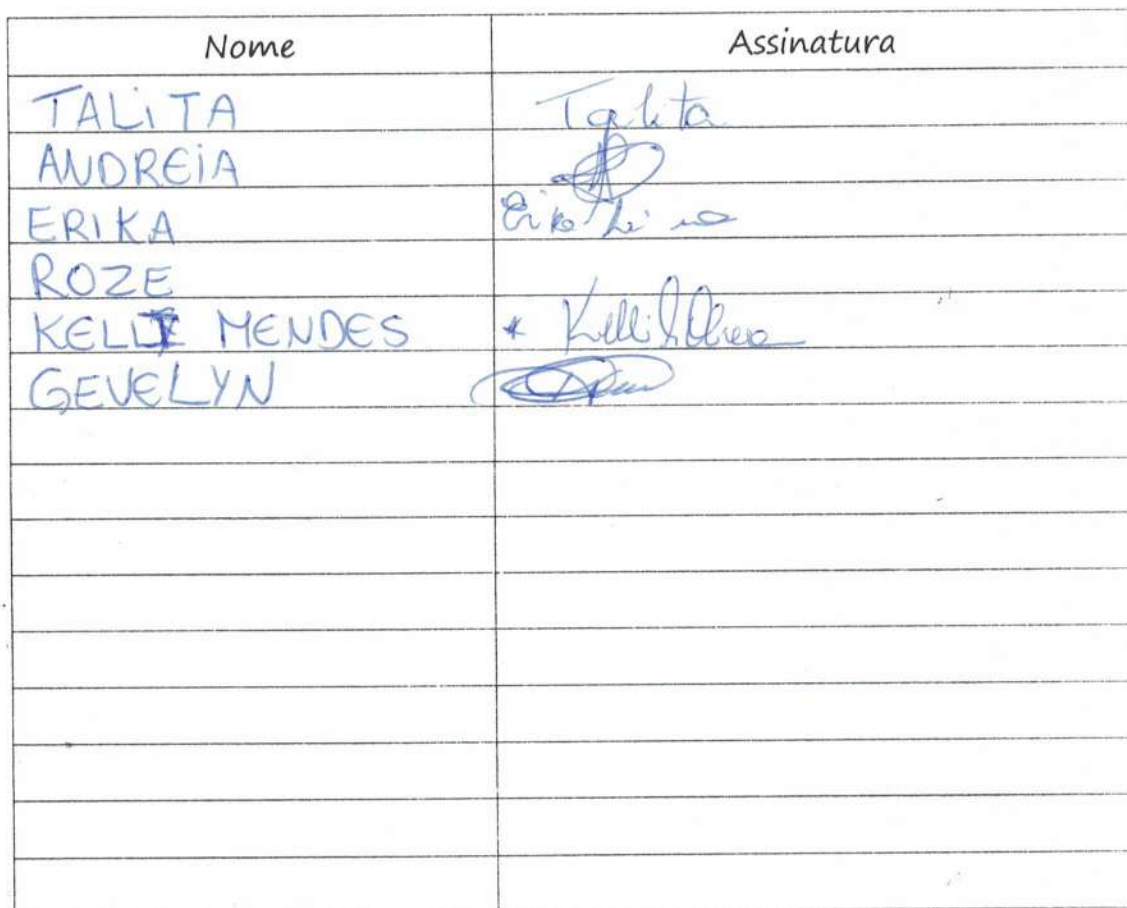 Nome Assinatura
TALITA Talita
ANDREIA
ERIKA Erika
ROZE
MENDES * Kelli
GEVELYN